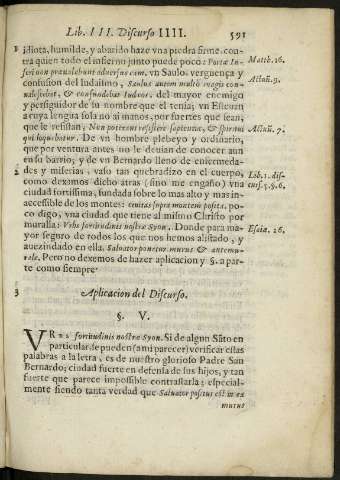 Lib. III. Discurso IIII. 591
idiota, humilde, y abatido haze vna piedra firme, con-
tra quien todo el infierno junto puede poco: Portæ In-
feri non præualebunt aduersus eam. vn Saulo verguença y
confusion del Iudaismo, Saulus autem multò magis con-
ualescebat, & confundebat Iudæos. del mayor enemigo
y persiguidor de su nombre que el tenia; vn Esteuan
a cuya lengua sola no ai manos, por fuertes que sean,
que le resistan, Non poterant resistere sapientiæ, & spiritui
qui loquebatur. De vn hombre plebeyo y ordinario,
que por ventura antes no le deuian de conocer aun
en su barrio; y de vn Bernardo lleno de enfermeda-
des y miserias, vaso tan quebradizo en el cuerpo,
como deximos dicho atras (sino me engaño) vna
ciudad fortissima, fundada sobre lo mas alto y mas in-
accessible de los montes: ciuitas supra montem posita. po-
co digo, vna ciudad que tiene al mismo Christo por
muralla: Vrbs fortitudinis nostræ Syon. Donde para ma-
yor seguro de todos los que nos hemos alistado, y
auezindado en ella. Saluator ponetur murus & antemu-
rale. Pero no dexemos de hazer aplicacion y §. a par-
te como siempre.
Matth. 16.
Actuũ. 9.
Actuũ. 7.
Lib. 1. dis-
curs. 5. §. 6.
Esaiæ. 26.
3
Aplicacion del Discurso.
§. V.
VRbs fortitudinis nostræ Syon. Si de algun Sãto en
particular se pueden (a mi parecer) verificar estas
palabras a la letra, es de nuestro glorioso Padre San
Bernardo; ciudad fuerte en defensa de sus hijos, y tan
fuerte que parece impossible contrastarla; especial-
mente siendo tanta verdad que Saluator positus est in ea
murus